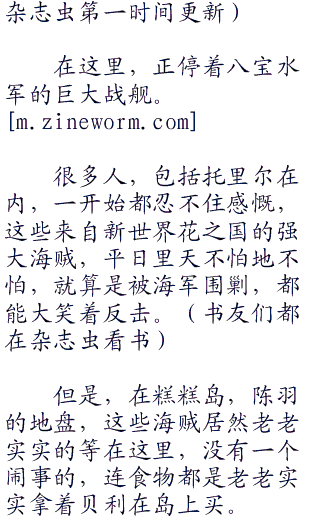 杂志虫第一时间更新）
在这里，正停着八宝水
军的巨大战舰。
[m.zineworm.com]
很多人，包括托里尔在
内，一开始都忍不住感慨，
这些来自新世界花之国的强
大海贼，平日里天不怕地不
怕，就算是被海军围剿，都
能大笑着反击。（书友们都
在杂志虫看书）
但是，在糕糕岛，陈羽
的地盘，这些海贼居然老老
实实的等在这里，没有一个
闹事的，连食物都是老老实
实拿着贝利在岛上买。